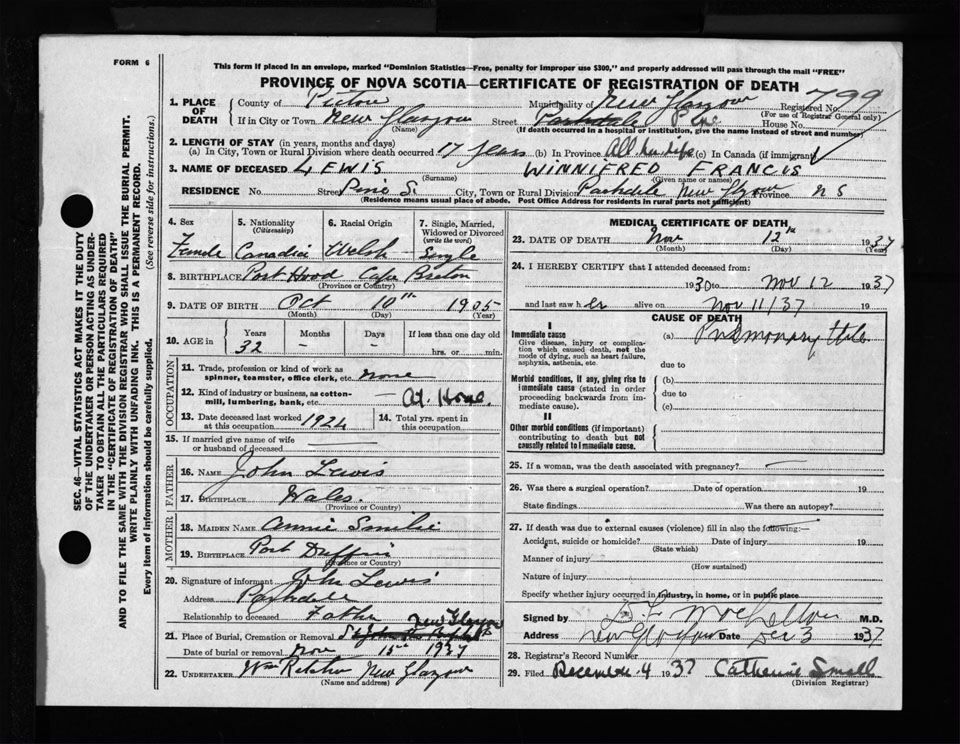 FORM 6
This form if placed in an envelope, marked "Dominion Statistics—Free, penalty for improper use $300," and properly addressed will pass through the mail "FREE"
PROVINCE OF NOVA SCOTIA—CERTIFICATE OF REGISTRATION OF DEATH
1. PLACE OF DEATH
County of Pictou Municipality of New Glasgow Registered No. 799
(For use of Registrar General only)
If in City or Town New Glasgow Street Parkdale House No.
(Name) (If death occurred in a hospital or institution, give the name instead of street and number)
2. LENGTH OF STAY (in years, months and days)
(a) In City, Town or Rural Division where death occurred 17 years (b) In Province All her life (c) In Canada (if immigrant)
3. NAME OF DECEASED LEWIS WINNIFRED FRANCIS
(Surname) (Given name or names)
RESIDENCE No. Street Pine S. City, Town or Rural Division Parkdale New Glasgow N S
(Residence means usual place of abode. Post Office Address for residents in rural parts not sufficient)
SEC. 46—VITAL STATISTICS ACT MAKES IT THE DUTY
OF THE UNDERTAKER OR PERSON ACTING AS UNDER-
TAKER TO OBTAIN ALL THE PARTICULARS REQUIRED
IN THE "CERTIFICATE OF REGISTRATION OF DEATH"
AND TO FILE THE SAME WITH THE DIVISION REGISTRAR WHO SHALL ISSUE THE BURIAL PERMIT.
WRITE PLAINLY WITH UNFADING INK. THIS IS A PERMANENT RECORD.
Every item of information should be carefully supplied. (See reverse side for instructions.)
4. Sex 5. Nationality 6. Racial Origin 7. Single, Married,
(Citizenship) Widowed or Divorced
(write the word)
Female Canadian Welsh Single
8. BIRTHPLACE Port Hood Cape Breton
(Province or Country)
9. DATE OF BIRTH Oct 10th 1905
(Month) (Day) (Year)
10. AGE in Years Months Days If less than one day old
32 – – hrs. or min.
OCCUPATION
11. Trade, profession or kind of work as
spinner, teamster, office clerk, etc. none
12. Kind of industry or business, as cotton-
mill, lumbering, bank, etc. At Home
13. Date deceased last worked
at this occupation 1924
14. Total yrs. spent
in this occupation
15. If married give name of wife
or husband of deceased
FATHER
16. NAME John Lewis
17. BIRTHPLACE Wales.
(Province or Country)
MOTHER
18. MAIDEN NAME Annie Smilie
19. BIRTHPLACE Port Duffrin
(Province or Country)
20. Signature of informant John Lewis
Address Parkdale
Relationship to deceased Father
21. Place of Burial, Cremation or Removal New Glasgow
Date of burial or removal Nov 15th 1937
22. UNDERTAKER New Glasgow
(Name and address)
MEDICAL CERTIFICATE OF DEATH
23. DATE OF DEATH Nov 12th 1937
(Month) (Day) (Year)
24. I HEREBY CERTIFY that I attended deceased from:
1930 to Nov 12 1937
and last saw her alive on Nov 11/37 19
CAUSE OF DEATH
I
Immediate cause
Give disease, injury or complica-
tion which caused death, not the
mode of dying, such as heart failure,
asphyxia, asthenia, etc.
(a) Pulmonary
due to
Morbid conditions, if any, giving rise to
immediate cause (stated in order
proceeding backwards from im-
mediate cause).
(b)
due to
(c)
II
Other morbid conditions (if important)
contributing to death but not
causally related to immediate cause.
25. If a woman, was the death associated with pregnancy?
26. Was there a surgical operation? Date of operation 19
State findings Was there an autopsy?
27. If death was due to external causes (violence) fill in also the following:—
Accident, suicide or homicide? Date of injury 19
(State which)
Manner of injury
(How sustained)
Nature of injury
Specify whether injury occurred in industry, in home, or in public place
Signed by M.D.
Address New Glasgow Date Dec 3 1937
28. Registrar's Record Number
29. Filed December 4 1937 Catherine Small
(Division Registrar)